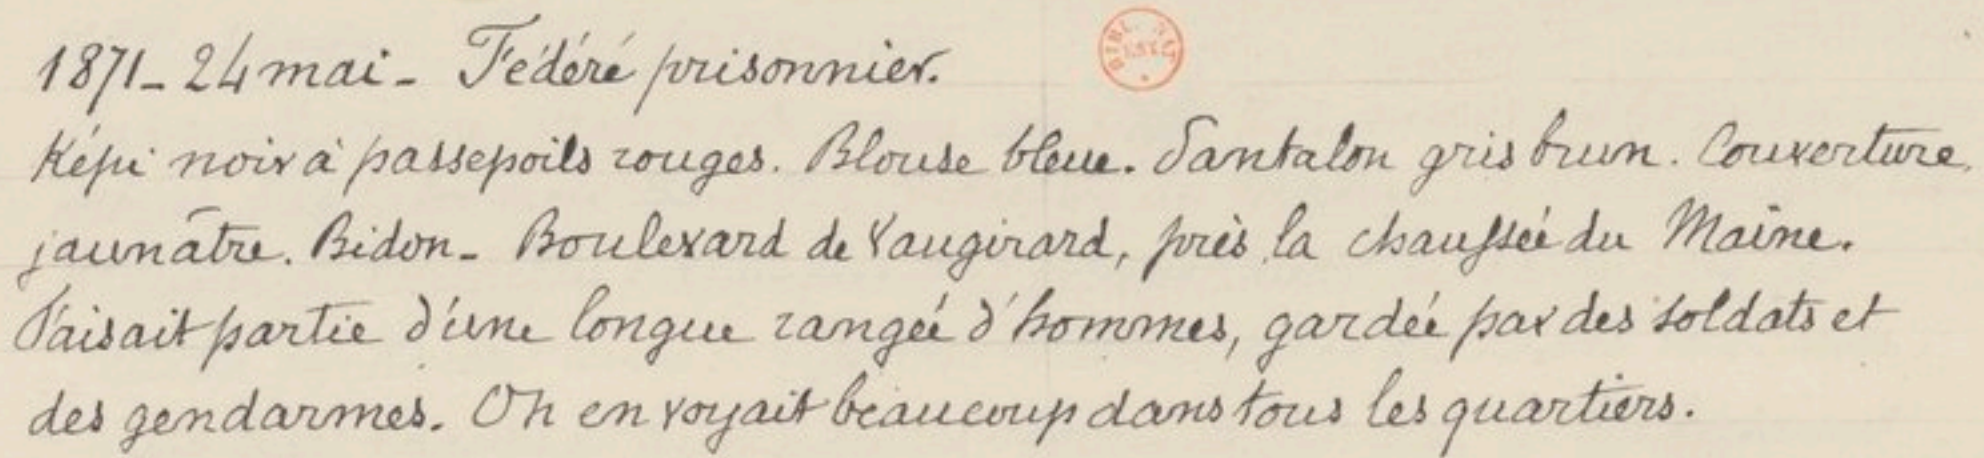 1871 - 24 mai - Fédéré prisonnier.
Képi noir à passepoils rouges. Blouse bleue. Pantalon gris brun. Couverture
jaunâtre. Bidon - Boulevard de Vaugirard, près la chaussée du Maine.
Faisait partie d'une longue rangée d'hommes, gardée par des soldats et
des gendarmes. On en voyait beaucoup dans tous les quartiers.
BIBL. NAT.
EST.